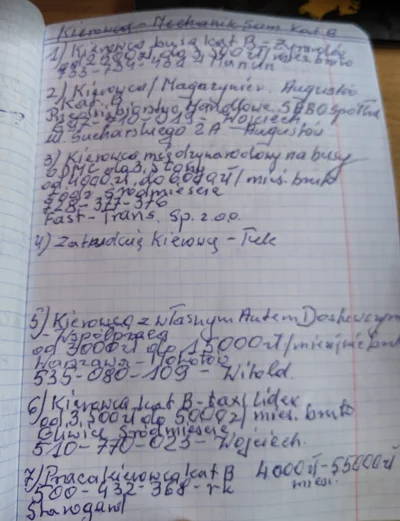 Kierowca - Mechanik Sam. kat. B
1) Kierowca busa kat. B -
od 2900zł do 3 300zł / mies. brutto
733-754-454
2) Kierowca / Magazynier. Augustów
Kat. B.
Przedsiębiorstwo Handlowe SABO Spółka
- Wojciech
ul. Sucharskiego 2A - Augustów
3) Kierowca międzynarodowy na busy
o DMC do 3,5 tony
od 4000zł do 6000zł / mies. brutto
Łódź Śródmieście
728-377-376
Fast-Trans. Sp. z o.o.
4) Zatrudnię Kierowcę -
5) Kierowca z własnym Autem Dostawczym
- Współpraca
od 9000zł do 15000zł / miesięcznie
Warszawa - Mokotów
535-080-109 - Witold.
6) Kierowca kat B - taxi Lider
od 3,500zł do 5000zł / mies. brutto
Gliwice Śródmieście
510-770-023 - Wojciech.
7) Praca kierowca kat B 4000zł-55000zł
500-432-368 - mies.
Starogard